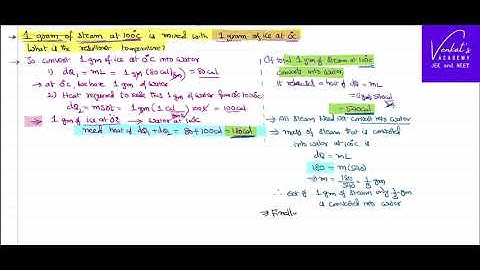 → 1 gram of steam at 100°C is mixed with 1 gram of ice at 0°C
What is the resultant temperature?
→ To convert 1 gm of ice at 0°C into water
1) dQ₁ = mL = 1 gm (80 cal/gm) = 80 cal
→ at 0°C, we have 1 gm of water
2) Heat required to raise this 1 gm of water from 0°C to 100°C
dQ₂ = msΔt = 1 gm (1 cal/gm°C) 100°C = 100 cal
→ 1 gm of ice at 0°C → water at 100°C
need heat of dQ₁ + dQ₂ = 80 + 100 cal = 180 cal
If total 1 gm of steam at 100°C
converts into water
it releases a heat of dQ = mL
= 1 gm 540 cal/gm
= 540 cal
→ All steam need not convert into water
→ mass of steam that is converted
into water at 100°C is
dQ = mL
180 = m(540)
⇒ m = 180/540 = 1/3 gm
∴ out of 1 gm of steam only 1/3 gm
is converted into water
⇒ Finall
Venkat's
ACADEMY
JEE and NEET